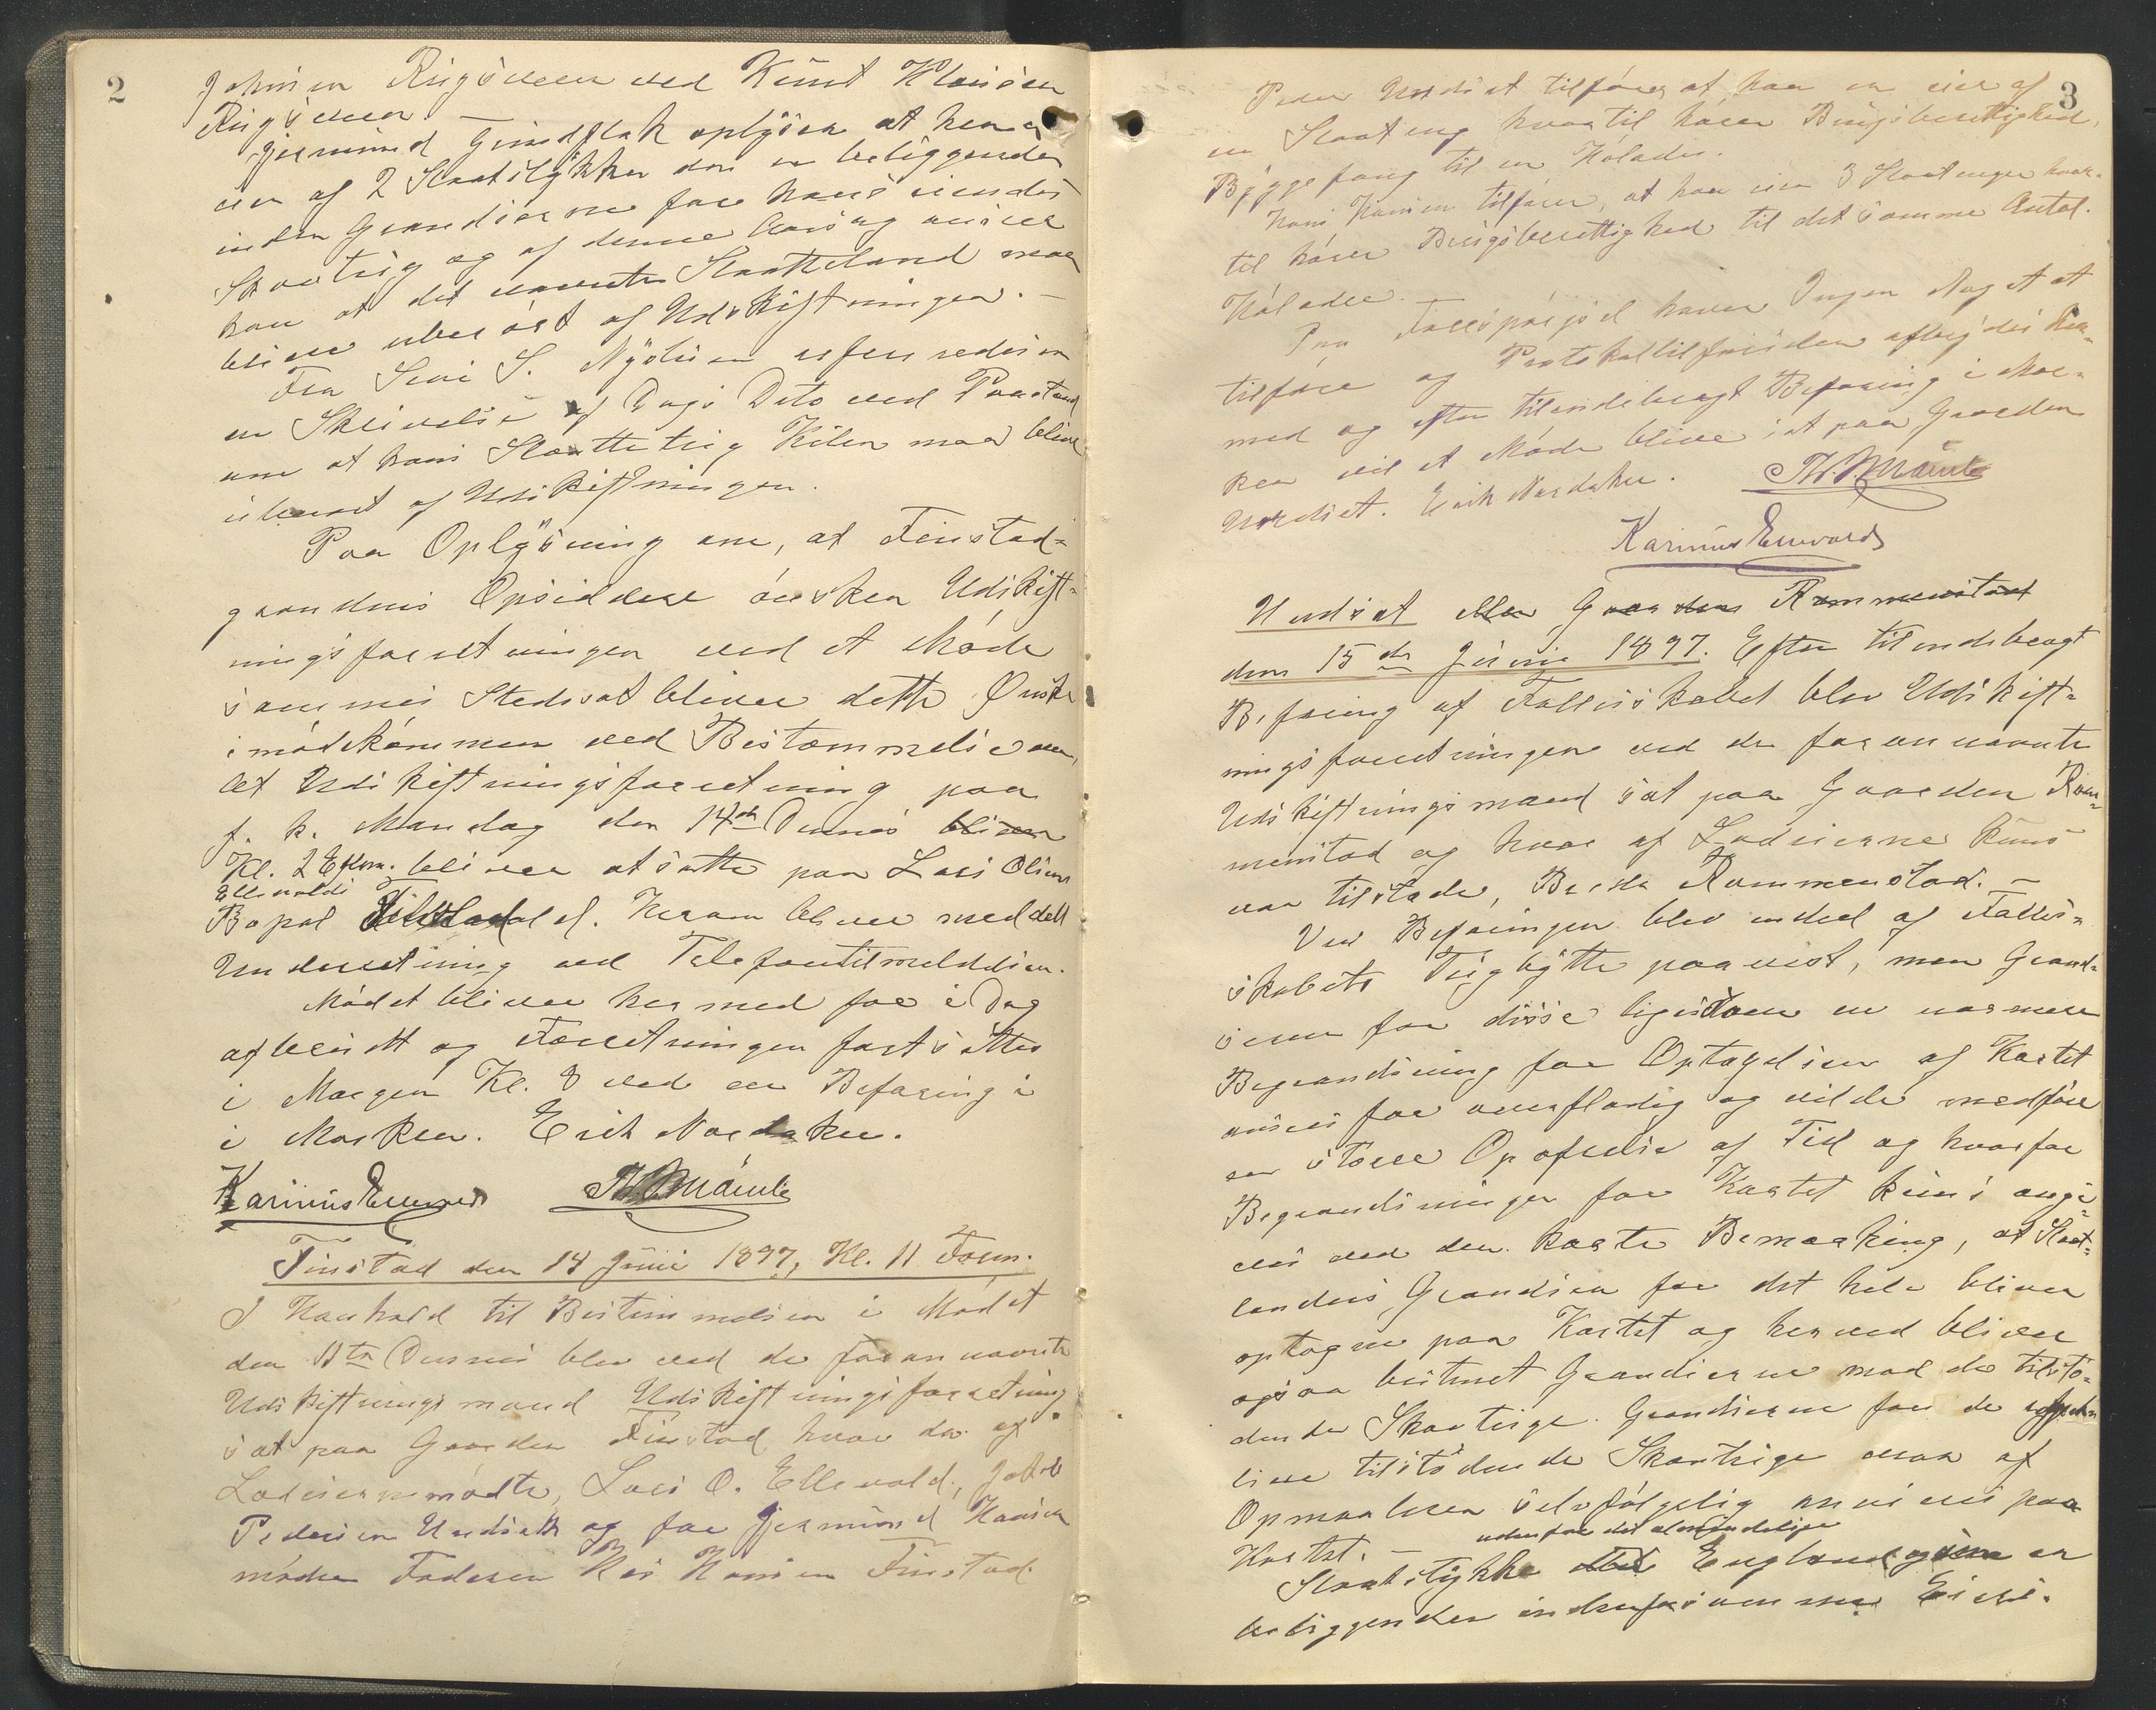 2
Johnsen Ringsveen ved Knut Hansen
Ringsveen —
Gjermund Grindflek oplyser at han er
eier af 2 Slaatstykker der er beliggende
inden Grændserne for hans eiendes
Skovteig og af denne Aarsag ansees
han at det nævnte Slaatteland maa
blive uberørt af Udskiftningen. —
Fra Simi S. Nyhus en refereredes
en Skrivelse af Dags Dato ved Paastand
om at hans Slaatteteig Kilen maa blive
uberørt af Udskiftningen.
Paa Oplysning om, at Finstad-
grændens Opsiddere ønsker Udskift-
ningsforretningen ved et Møde
sammesteds sat bliver dette Ønske
imødekommen ved Bestemmelse om,
at Udskiftningsforretning paa
f. k. Mandag den 14de Dennes bliver
Kl. 2 Efterm. bliver at sætte paa Lars Olsens
Ellevolds
Bopæl Finstad. Herom bliver meddelt
Underretning ved Telefontilmeldelsen.
Mødet bliver hermed for i Dag
afbrudt og Forretningen fortsættes
i Morgen Kl. 8 ved en Befaring i
i Marken. Erik Nordaker.
Karinus Enevold
Finstad den 14 Juni 1897, Kl. 11 Form.
I Henhold til Bestemmelsen i Mødet
den 11te Dennes blev ved de foran nævnte
Udskiftningsmænd Udskiftningsforretning
sat paa Gaarden Finstad hvor da af
Lodeierne mødte, Lars O. Ellevold, Jakob
Pedersen Undset og for Gjermund Hansen
møder Faderen Hans Hansen Finstad.
3
Peder Undset tilfører at han er eier af
en Slaateng hvortil hører Brugsberettighed,
Byggefang til en Hølade.
Hans Hansen tilfører, at han eier 3 Slaatenger hvor-
til hører Brugsberettighed til det samme Antal
Hølader.
Paa Forespørgsel havde Ingen Noget at
tilføre og Protokoltilførselen afbrydes her-
med og efter tilendebragt Befaring i Mar-
ken vil et Møde blive sat paa Gaarden
Undset. Erik Nordaker.
Karinus Enevold
Undset eller Gaarden Rommenstad
den 15de Juni 1897. Efter tilendebragt
Befaring af Fællesskabet blev Udskift-
ningsforretningen ved de forannævnte
Udskiftningsmænd sat paa Gaarden Rom-
menstad og hvor af Lodeierne kuns
var tilstede, Berte Rommenstad. —
Ved Befaringen blev endel af Fælles-
skabets Teigbytte paavist, men Grænd-
serne for disse ligesom en nærmere
Begrændsning for Optagelsen af Kartet
ansees for overflødig og vilde medføre
en større Opofrelse af Tid og hvorfor
Begrændsninger for Kartet kuns angi-
ves ved den korte Bemærkning, at Slaat-
landets Grændser for det hele bliver
optagne paa Kartet og herved bliver
ogsaa bestemt Grændserne mod de tilstø-
dende Skovteige. Grændserne for de
tilstødende Skovteige maa af
Opmaaleren selvfølgelig anvises paa
Kartet. —
udenfor det almindelige
Slaatstykke det England er
beliggende indenfor samme Eien-